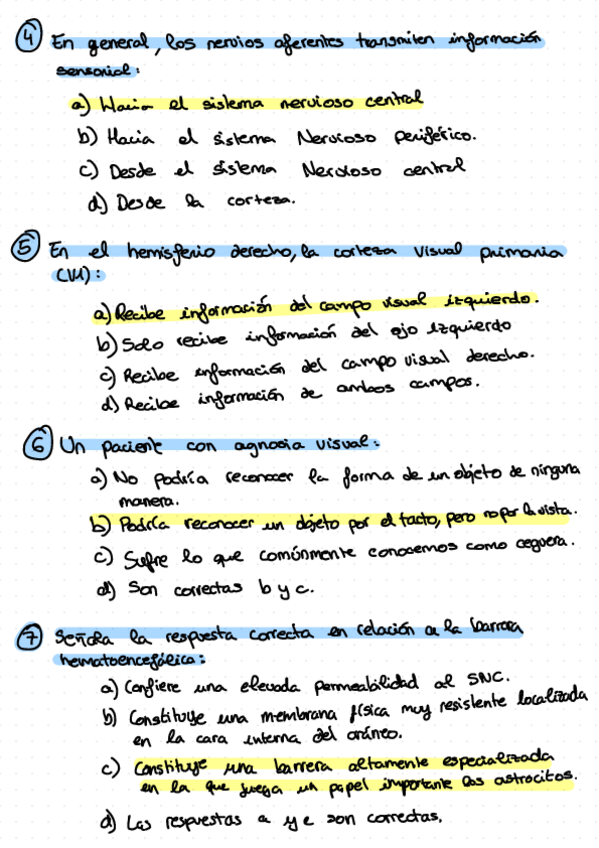 4 En general, los nervios aferentes transmiten información
sensorial:
a) Hacia el sistema nervioso central
b) Hacia el sistema Nervioso periférico.
c) Desde el sistema Nervioso central
d) Desde la corteza.
5 En el hemisferio derecho, la corteza visual primaria
(V1):
a) Recibe información del campo visual izquierdo.
b) Solo recibe información del ojo izquierdo
c) Recibe información del campo visual derecho.
d) Recibe información de ambos campos.
6 Un paciente con agnosia visual:
a) No podría reconocer la forma de un objeto de ninguna
manera.
b) Podría reconocer un objeto por el tacto, pero no por la vista.
c) Sufre lo que comúnmente conocemos como ceguera.
d) Son correctas b y c.
7 Señala la respuesta correcta en relación a la barrera
hematoencefálica:
a) Confiere una elevada permeabilidad al SNC.
b) Constituye una membrana física muy resistente localizada
en la cara interna del cráneo.
c) Constituye una barrera altamente especializada
en la que juega un papel importante los astrocitos.
d) Las respuestas a y c son correctas.